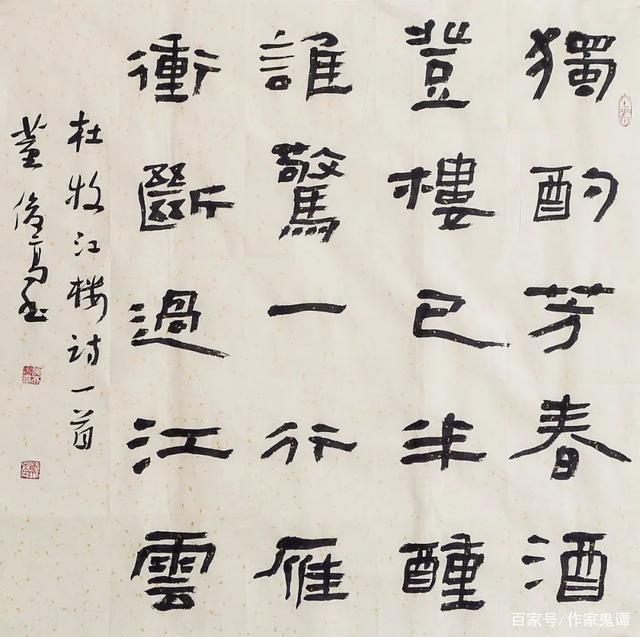 獨酌芳春酒
登樓已半醺
誰驚一行雁
衝斷過江雲
杜牧江楼诗一首
董俊高书
百家号/作家鬼谭